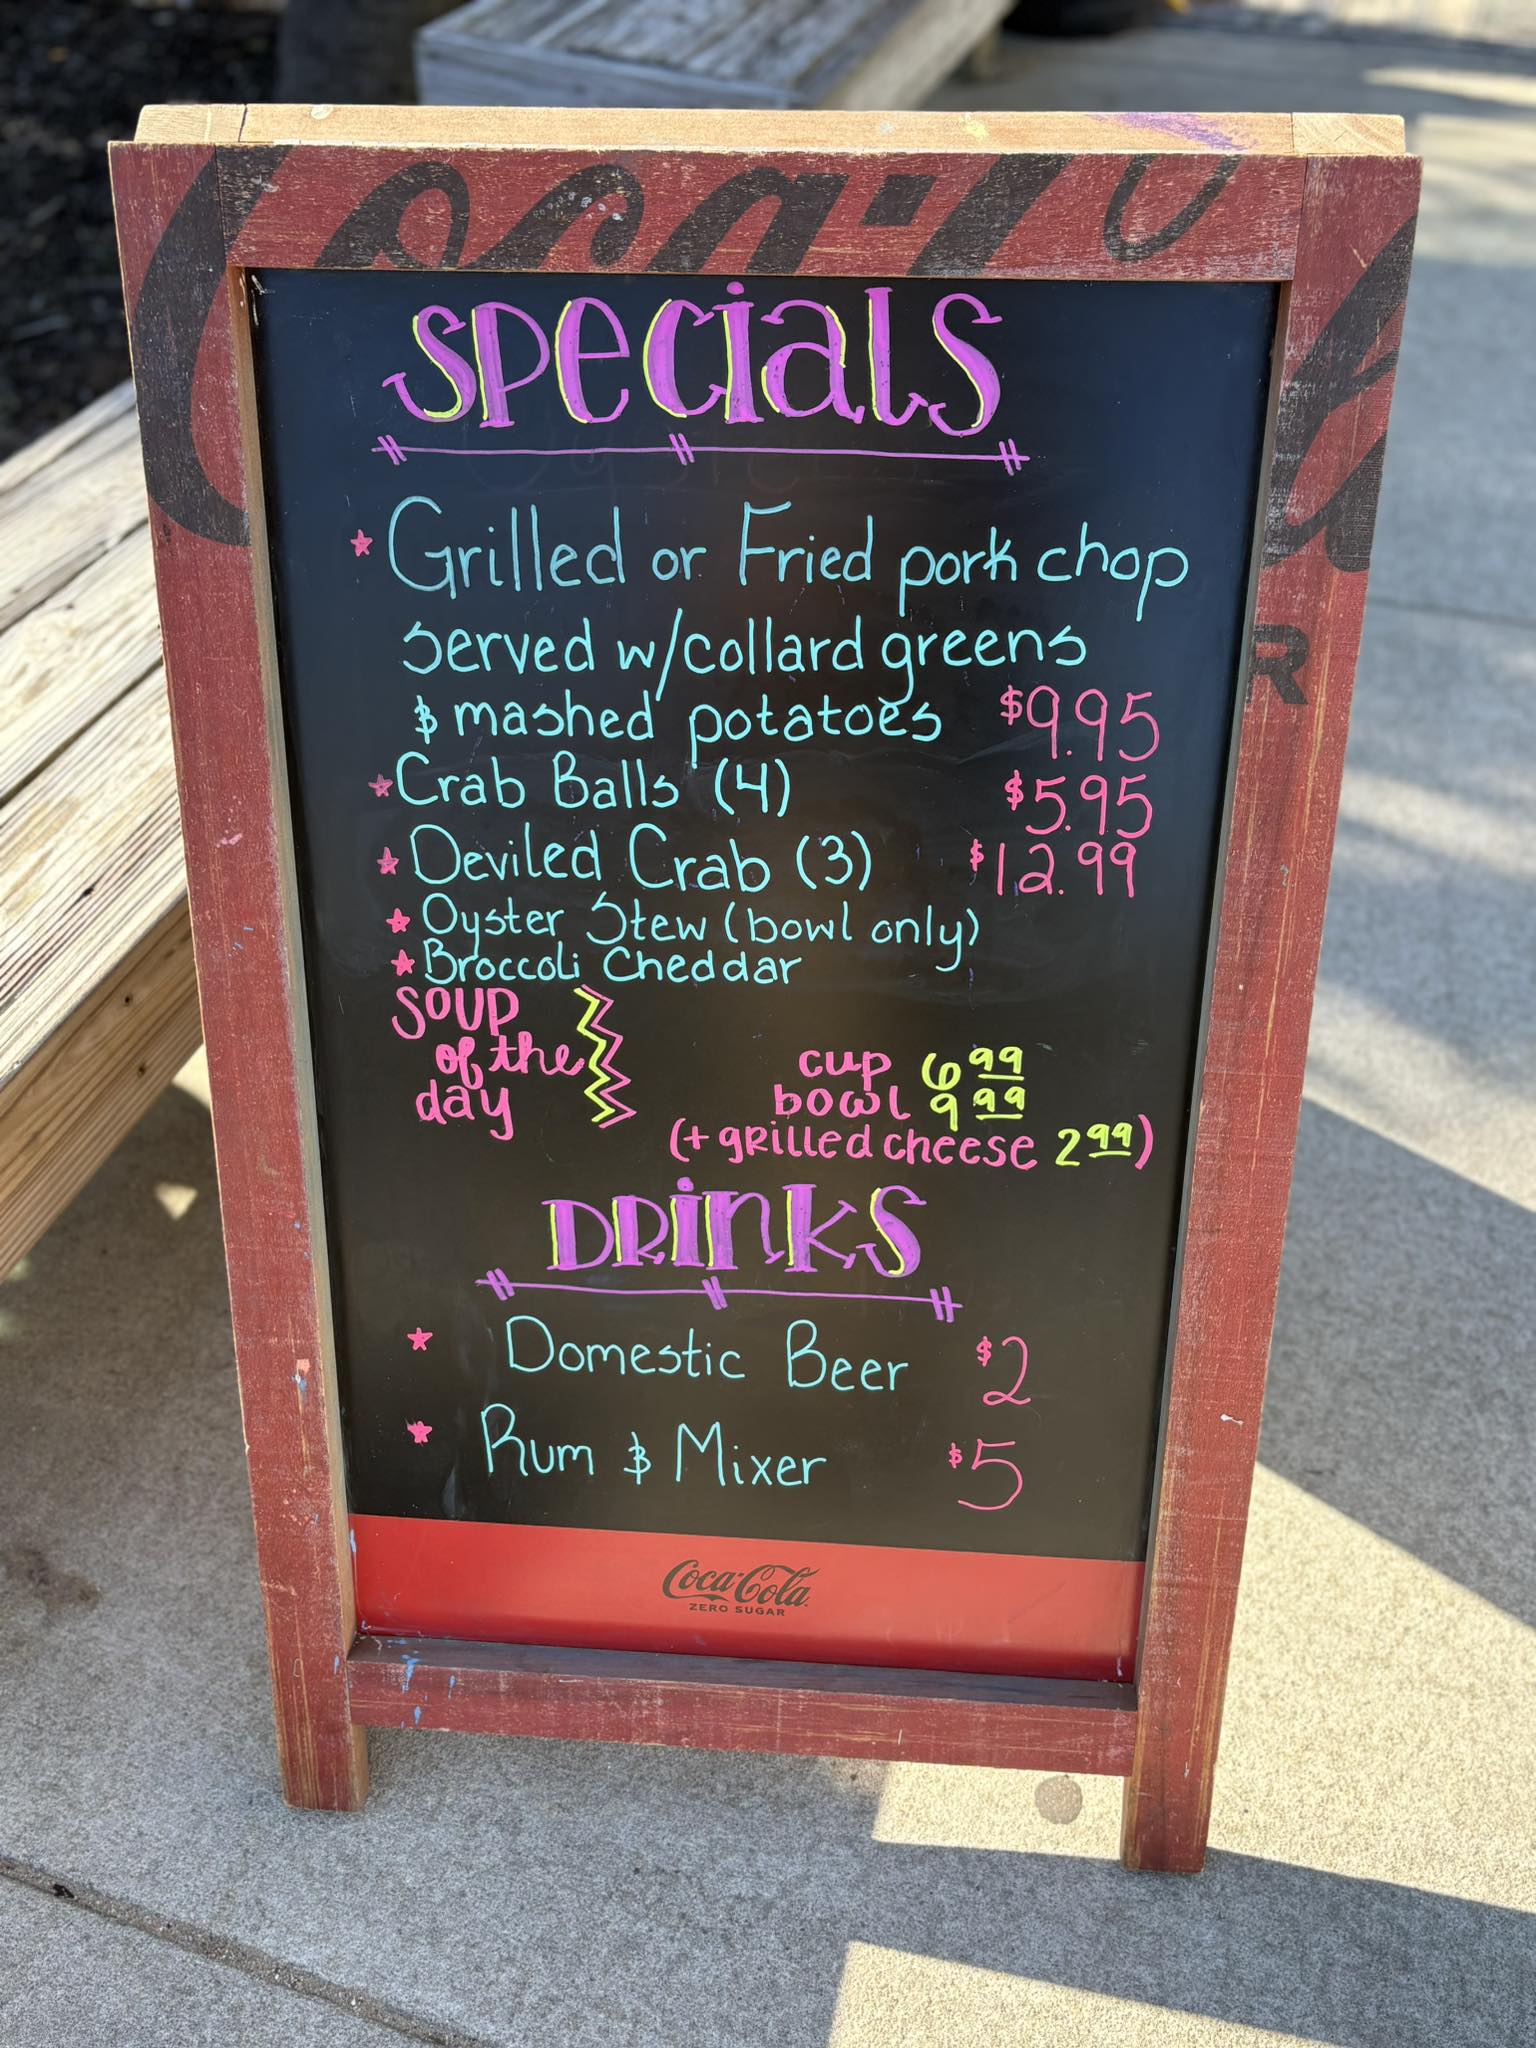 Specials
Grilled or Fried pork chop
served w/collard greens
& mashed potatoes $9.95
Crab Balls (4) $5.95
Deviled Crab (3) $12.99
Oyster Stew (bowl only)
Broccoli Cheddar
soup
of the
day
cup 6 99
bowl 9 99
(+ grilled cheese 2 99)
Drinks
Domestic Beer $2
Rum & Mixer $5
Coca-Cola
ZERO SUGAR